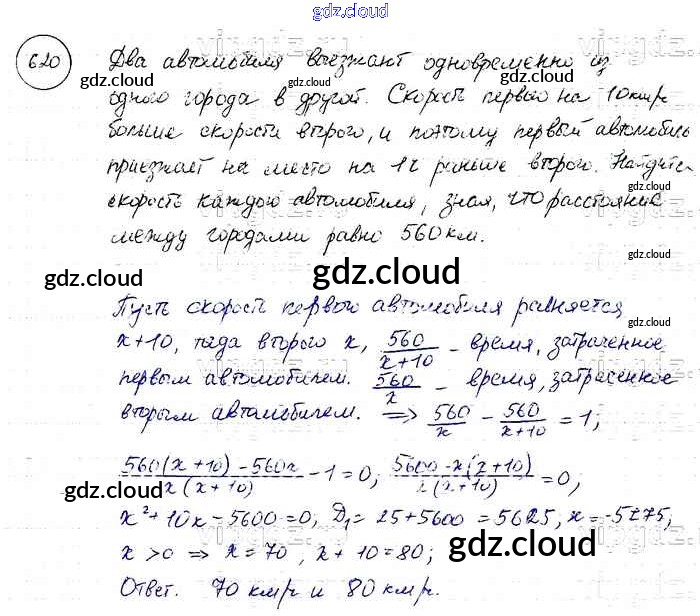 gdz.cloud
620 Два автомобиля выезжают одновременно из
одного города в другой. Скорость первого на 10 км/ч
больше скорости второго, и поэтому первый автомобиль
приезжает на место на 1ч раньше второго. Найдите
скорость каждого автомобиля, зная, что расстояние
между городами равно 560 км.
Пусть скорость первого автомобиля равняется
x+10, тогда второго x, 560/(x+10) - время, затраченное
первым автомобилем. 560/x - время, затраченное
вторым автомобилем. ⇒ 560/x - 560/(x+10) = 1;
(560(x+10) - 560x)/(x(x+10)) - 1 = 0; (5600 - x(x+10))/(x(x+10)) = 0;
x² + 10x - 5600 = 0; D₁ = 25 + 5600 = 5625, x = -5±75;
x > 0 ⇒ x = 70, x + 10 = 80;
Ответ. 70 км/ч и 80 км/ч.
gdz.cloud
gdz.cloud
gdz.cloud
gdz.cloud
gdz.cloud
gdz.cloud
gdz.cloud
gdz.cloud
gdz.cloud
gdz.cloud
gdz.cloud
gdz.cloud
gdz.cloud